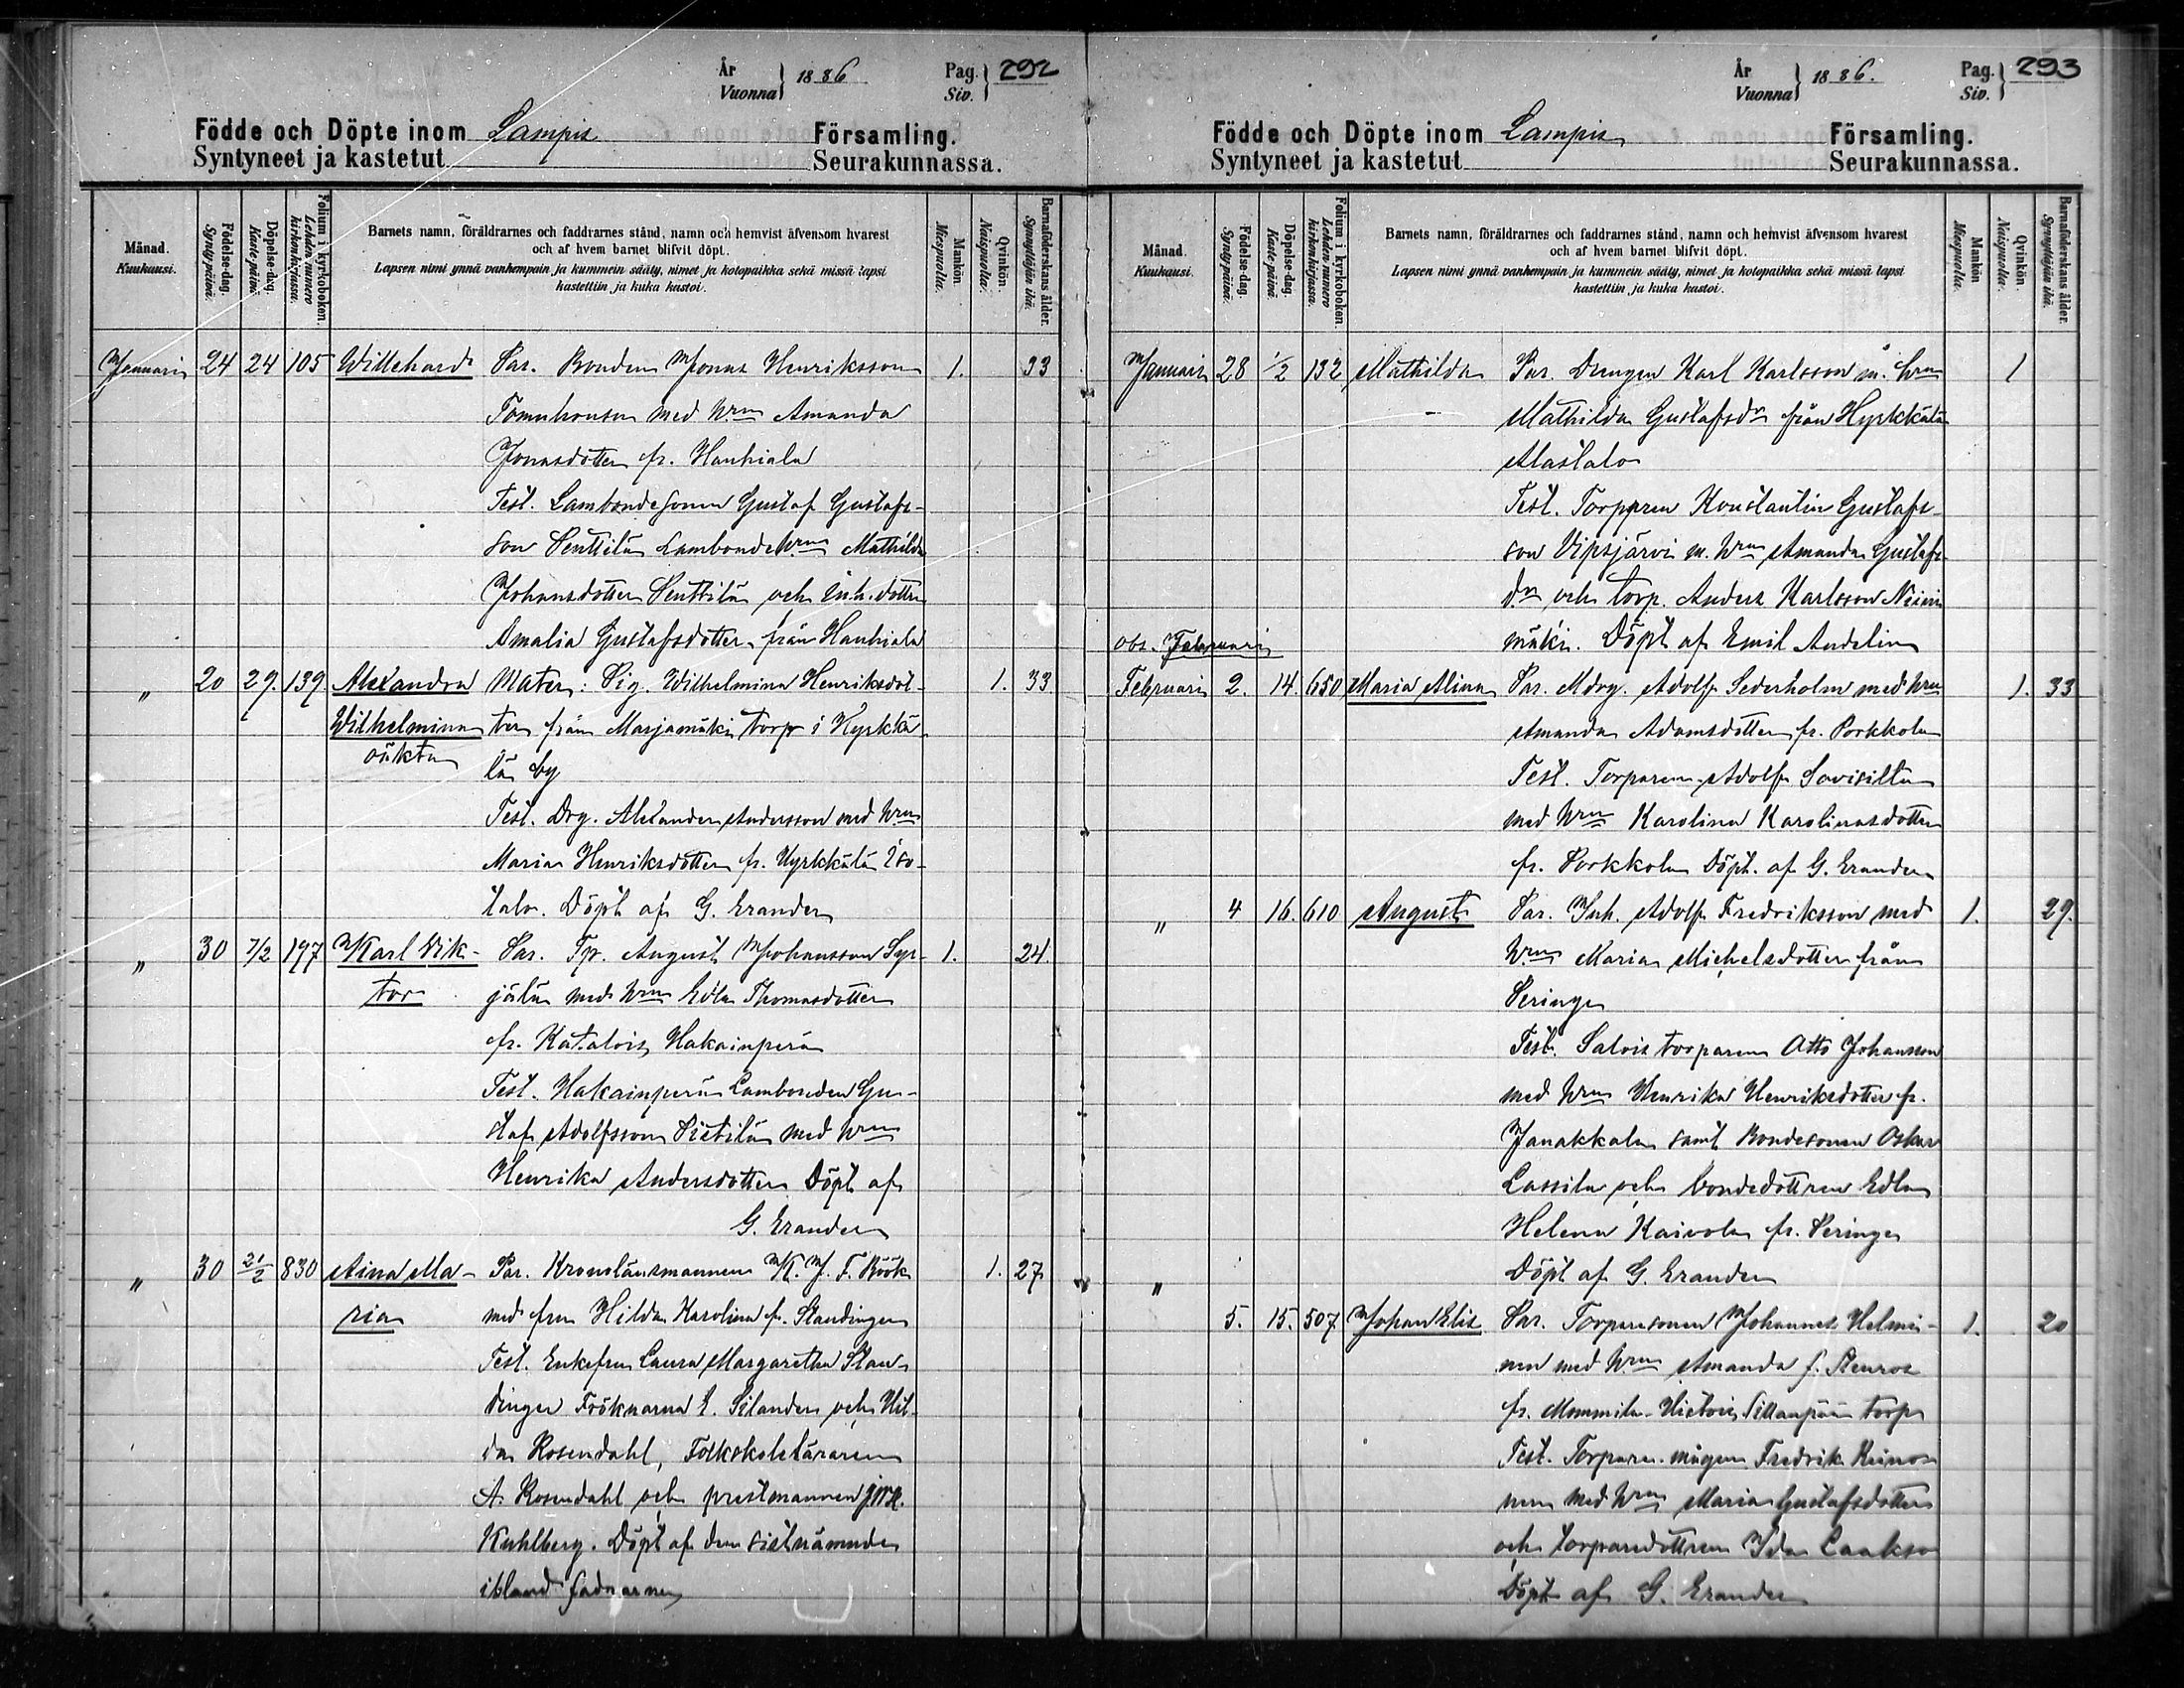 År
Vuonna
1886
Pag.
Siv.
292
Födde och Döpte inom Lampis Församling.
Syntyneet ja kastetut Seurakunnassa.
Månad.
Kuukausi.
Födelse-dag.
Synty-päivä.
Döpelse-dag.
Kaste-päivä.
Folium i kyrkoboken.
Lehden numero kirkonkirjassa.
Barnets namn, föräldrarnes och faddrarnes stånd, namn och hemvist äfvensom hvarest
och af hvem barnet blifvit döpt.
Lapsen nimi ynnä vanhempain ja kummein sääty, nimet ja kotopaikka sekä missä lapsi
kastettiin ja kuka kastoi.
Mankön
Miespuolia.
Qvinkön.
Naispuolia.
Barnaföderskans ålder.
Synnyttäjän ikä.
Januari 24 24 105 Willehard Par. Bonden Jonas Henriksson 1. 33
med hrun Amanda
Jonasdotter fr. Hauhiala
Test. Lambondesonen Gustaf Gustafs-
son Penttilä Lambondehrun Mathilda
Johansdotter Penttilä och inh. dotter
Amalia Gustafsdotter från Hauhiala
" 20 29. 139 Alexandra Mater: Pig. Wilhelmina Henriksdot- 1. 33
Wilhelmina ter från Marjamäki torp i Hyrkkä-
oäkta lä by
Test. Drg. Alexander Andersson med hrun
Maria Henriksdotter fr. Hyrkkälä Iso-
talo. Döpt af G. Erander
" 30 7/2 197 Karl Vik- Par. Tp. August Johansson Syr- 1. 24.
tor jälä med hrun Edla Thomasdotter
fr. Katalois, Hakainperä
Test. Hakainperä Lambonden Gu-
staf Adolfsson Pietilä med hrun
Henrika Andersdotter Döpt af
G. Erander
" 30 21/2 830 Aina Ma- Par. Kronolänsmannen K. J. F. Böök 1. 27
ria med fru Hilda Karolina f. Staudinger
Test. Enkefru Laura Margaretha Stau-
dinger Fröknarna E. Silander och Hil-
da Rosendahl, Folkskoleläraren
A. Rosendahl och prestmannen
Kuhlberg. Döpt af den sistnämnde
ibland faddrarne
År
Vuonna
1886.
Pag.
Siv.
293
Födde och Döpte inom Lampis Församling.
Syntyneet ja kastetut Seurakunnassa.
Månad.
Kuukausi.
Födelse-dag.
Synty-päivä.
Döpelse-dag.
Kaste-päivä.
Folium i kyrkoboken.
Lehden numero kirkonkirjassa.
Barnets namn, föräldrarnes och faddrarnes stånd, namn och hemvist äfvensom hvarest
och af hvem barnet blifvit döpt.
Lapsen nimi ynnä vanhempain ja kummein sääty, nimet ja kotopaikka sekä missä lapsi
kastettiin ja kuka kastoi.
Mankön
Miespuolia.
Qvinkön.
Naispuolia.
Barnaföderskans ålder.
Synnyttäjän ikä.
Januari 28 1/2 132 Mathilda Par. Drengen Karl Karlsson m. hrun 1
Mathilda Gustafsdr från Hyrkkälä
Alastalo
Test. Torparen Konstantin Gustafs-
son Vipsjärvi m. hrun Amanda Gustafs-
dr och torp. Anders Karlsson Niini
mäki. Döpt af Emil Andelin
obs. Februari
Februari 2. 14. 650 Maria Alina Par. Mdrg. Adolf Sederholm med hrun 1. 33
Amanda Adamsdotter fr. Porkkola
Test. Torparen Adolf Savisilta
med hrun Karolina Karolinasdotter
fr. Porkkola Döpt. af G. Erander
" 4 16. 610 August Par. Inh. Adolf Fredriksson med 1. 29.
hrun Maria Michelsdotter från
Peringe
Test. Salois torparen Otto Johansson
med hrun Henrika Henriksdotter fr.
Janakkala samt Bondesonen Oskar
Lassila och bondedottren Edla
Helena Kaivola fr. Peringe
Döpt af G. Erander
" 5. 15. 507 Johan Elis. Par. Torparesonen Johannes Helmi- 1. 20
nen med hrun Amanda f. Stenros
fr. Mommila-Hietois torp
Test. Torpare-mågen Fredrik Reino-
nen med hrun Maria Gustafsdotter
och torparedottren Ida Laakso
Döpt af G. Erander